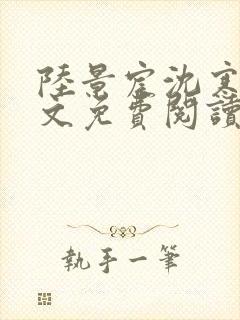 陸景宦沈寒
文免費閱讀
執手一筆